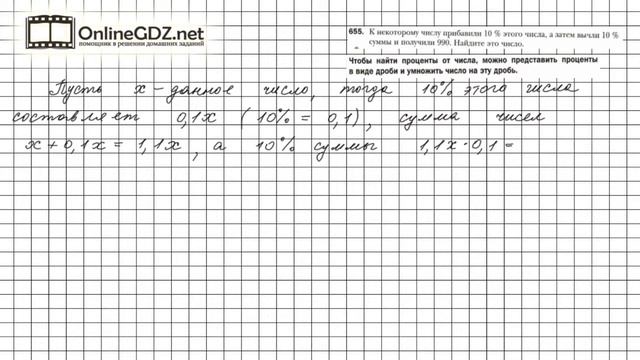 OnlineGDZ.net
помощник в решении домашних заданий
655. К некоторому числу прибавили 10 % этого числа, а затем вычли 10 %
суммы и получили 990. Найдите это число.
Чтобы найти проценты от числа, можно представить проценты
в виде дроби и умножить число на эту дробь.
Пусть x – данное число, тогда 10% этого числа
составляет 0,1x (10% = 0,1), сумма чисел
x + 0,1x = 1,1x, а 10% суммы 1,1x · 0,1 =